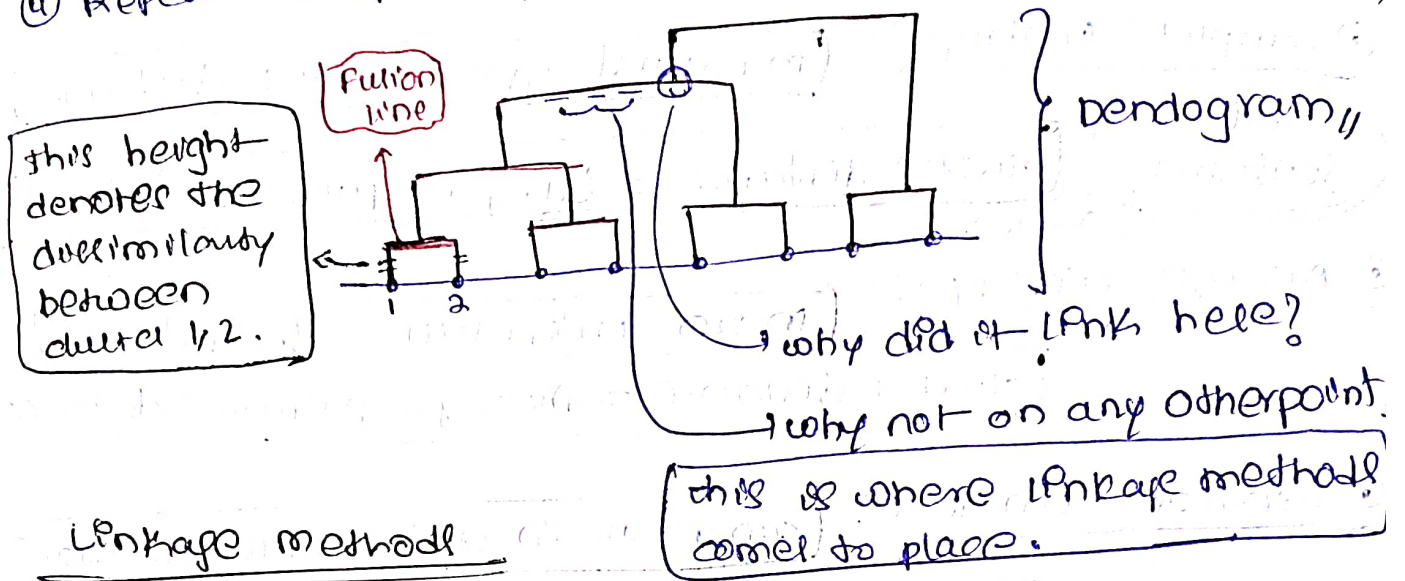 ④ Repe
Fusion
line
this height
denotes the
dissimilarity
between
cluster 1, 2.
Dendogram,,
1 2
why did it link here?
why not on any other point.
this is where linkage methods
comes to place.
Linkage methods